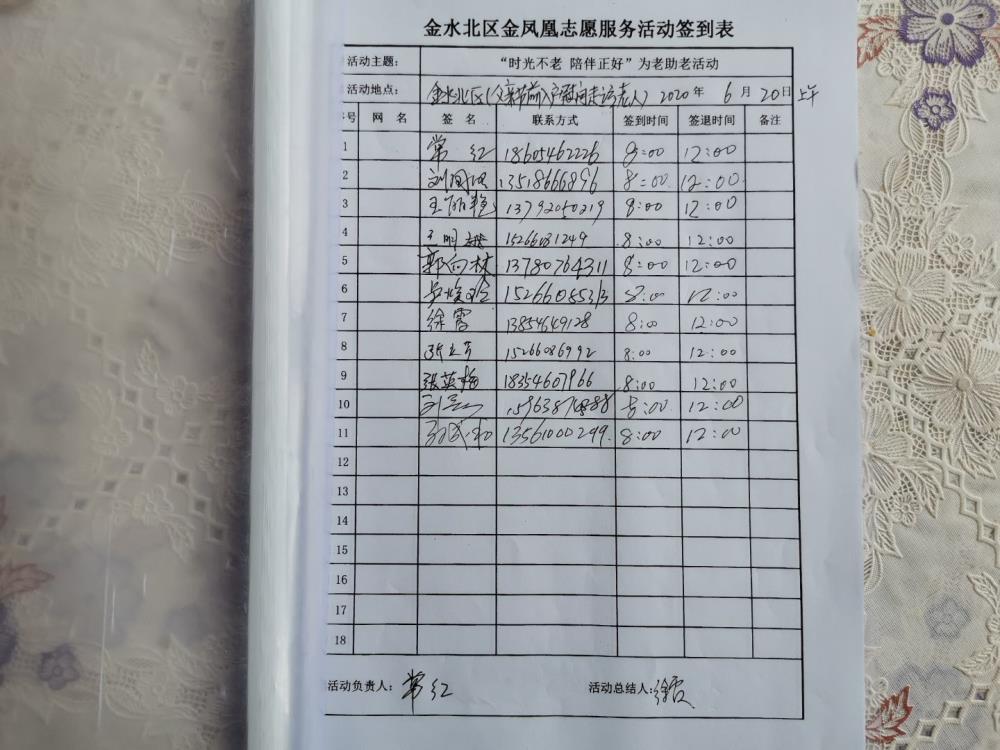 金水北区金凤凰志愿服务活动签到表
活动主题： “时光不老 陪伴正好”为老助老活动
活动地点： 金水北区（父亲节前入户慰问走访老人） 2020 年 6 月 20 日 上午
序号 网 名 签 名 联系方式 签到时间 签退时间 备注
1 常红 18605462226 8:00 12:00
2 13518666896 8:00 12:00
3 王丽艳 13792050219 8:00 12:00
4 王明 15266081249 8:00 12:00
5 郭向林 13780764311 8:00 12:00
6 15266085313 8:00 12:00
7 徐霞 13854649128 8:00 12:00
8 15266086992 8:00 12:00
9 张英梅 18354607966 8:00 12:00
10 8:00 12:00
11 13561000299 8:00 12:00
12
13
14
15
16
17
18
活动负责人： 常红 活动总结人： 徐霞